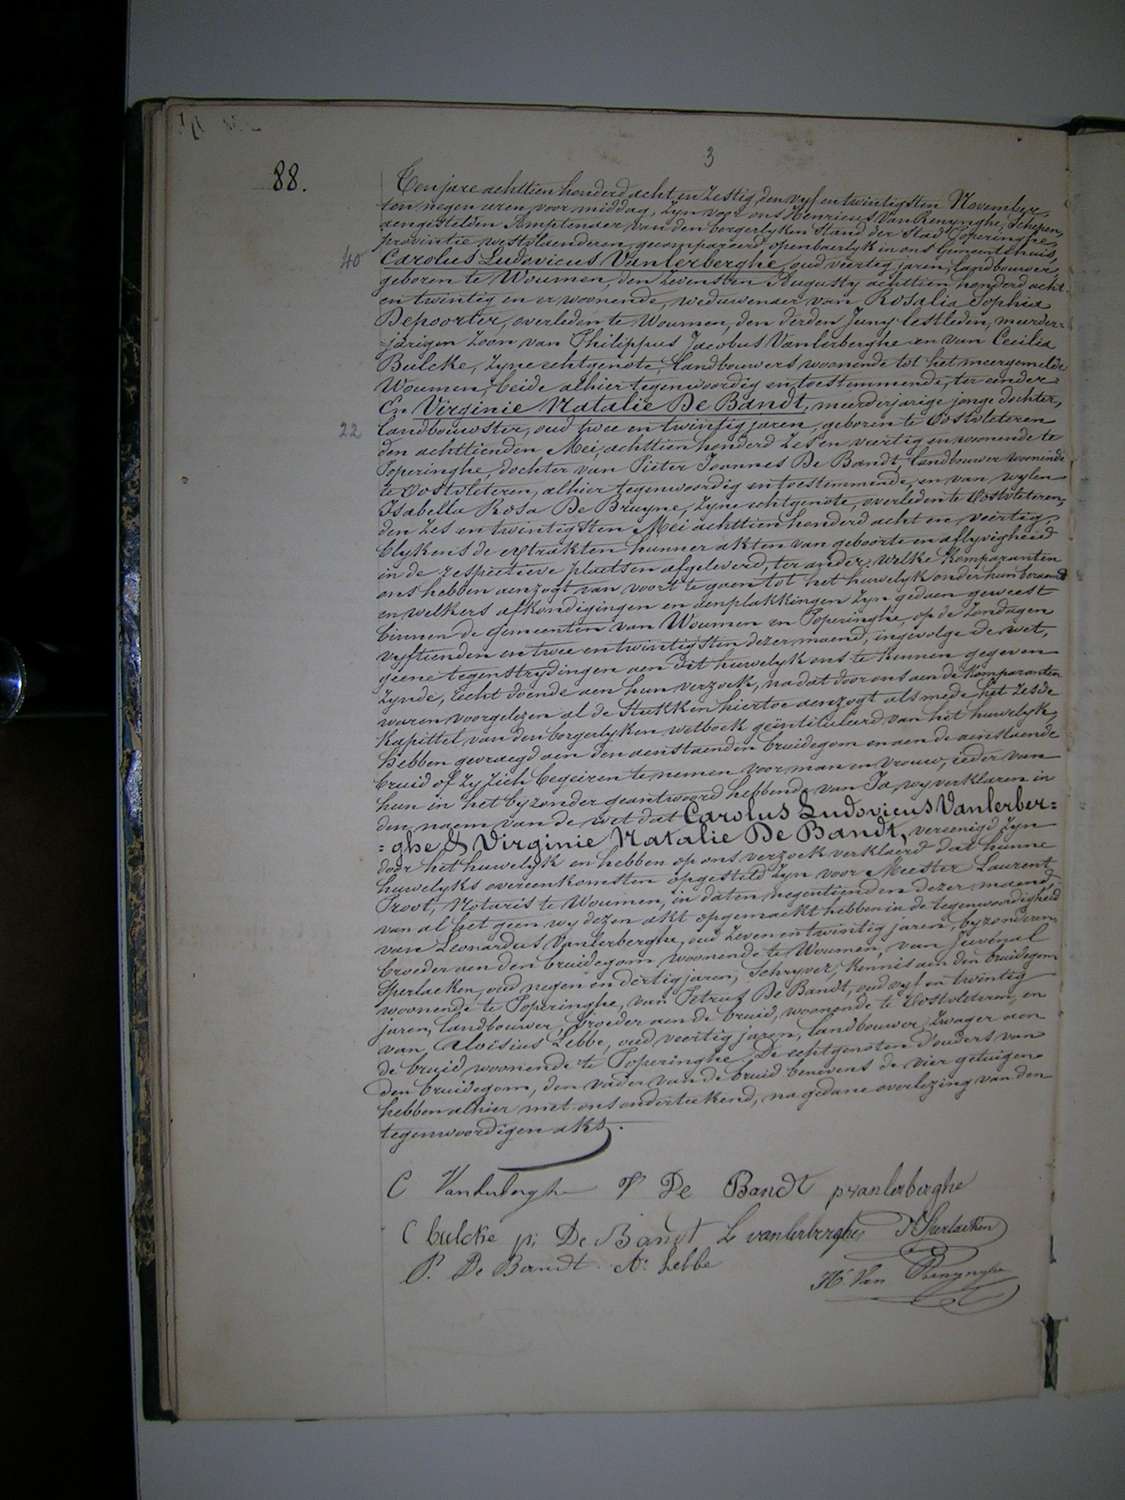 3
88.
Ten jare achttien honderd acht en zestig, den vyf en twintigsten November,
ten negen uren voor middag, zyn voor ons Henricus Van Renynghe, Schepen,
aengestelden Amptenaer van den borgerlyken Stand der Stad Poperinghe,
provintie westvlaenderen, gecompareerd, openbaerlyk in ons Gemeentehuis,
40 Carolus Ludovicus Vanlerberghe, oud veertig jaren, landbouwer,
geboren te Woumen, den zevensten Augusty achttien honderd acht
en twintig en er woonende, weduwenaer van Rosalia Sophia
Depoorter, overleden te Woumen, den derden Juny lestleden, meerder-
jarigen zoon van Philippus Jacobus Vanlerberghe en van Cecilia
Bulcke, zyne echtgenote, landbouwers woonende tot het meergemelde
Woumen, beide alhier tegenwoordig en toestemmende, ter eender
En Virginie Natalie De Bandt, meerderjarige jonge dochter,
22 landbouwster, oud twee en twintig jaren, geboren te Oostvleteren
den achttienden Mei, achttien honderd zes en veertig en woonende te
Poperinghe, dochter van Pieter Joannes De Bandt, landbouwer woonende
te Oostvleteren, alhier tegenwoordig en toestemmende, en van wylen
Isabella Rosa De Bruyne, zyne echtgenote, overleden te Oostvleteren,
den zes en twintigsten Mei achttien honderd acht en veertig,
blykens de extrakten hunner akten van geboorte en aflyvigheid
in de respectieve plaetsen afgeleverd, ter ander; welke komparanten
ons hebben aenzogt van voort te gaen tot het huwelyk onder hun beraemd
en welkers afkondigingen en aenplakkingen zyn gedaen geweest
binnen de Gemeenten van Woumen en Poperinghe, op de Zondagen
vyftienden en twee en twintigsten dezer maend, ingevolge de wet,
geene tegenstrydingen aen dit huwelyk ons te kennen gegeven
zynde, recht doende aen hun verzoek, nadat door ons aen de komparanten
waren voorgelezen al de stukken hiertoe aenzogt alsmede het zesde
kapittel van den borgerlyken wetboek geïntituleerd van het huwelyk,
hebben gevraegd aen den aenstaenden bruidegom en aen de aenstaende
bruid of zy zich begeiren te nemen voor man en vrouw, ieder van
hun in het byzonder geantwoord hebbende van Ja, wy verklaren in
den naem van de wet dat Carolus Ludovicus Vanlerber-
=ghe & Virginie Natalie De Bandt, vereenigd zyn
door het huwelyk en hebben op ons verzoek verklaerd dat hunne
huwelyks overeenkomsten opgesteld zyn voor Meester Laurent
Proot, Notaris te Woumen, in daten negentienden dezer maend,
van al het geen wy dezen akt opgemaekt hebben in de tegenwoordigheid
van Leonardus Vanlerberghe, oud zeven en twintig jaren, byzonderen,
broeder aen den bruidegom woonende te Woumen, van Juvénal
Sperlaeken, oud negen en dertig jaren, Schryver, kennis aen den bruidegom
woonende te Poperinghe, van Petrus De Bandt, oud vyf en twintig
jaren, landbouwer, broeder aen de bruid, woonende te Oostvleteren, en
van Aloïsius Lebbe, oud veertig jaren, landbouwer, Zwager aen
de bruid woonende te Poperinghe. De echtgenoten d'ouders van
den bruidegom, den vader van de bruid benevens de vier getuigen
hebben alhier met ons onderteekend, na gedane overlezing van den
tegenwoordigen akt.
C Vanlerberghe V De Bandt p vanlerberghe
C bulcke pi De Bandt L vanlerberghe J Sperlaeken
P. De Bandt A: Lebbe
H Van Renynghe